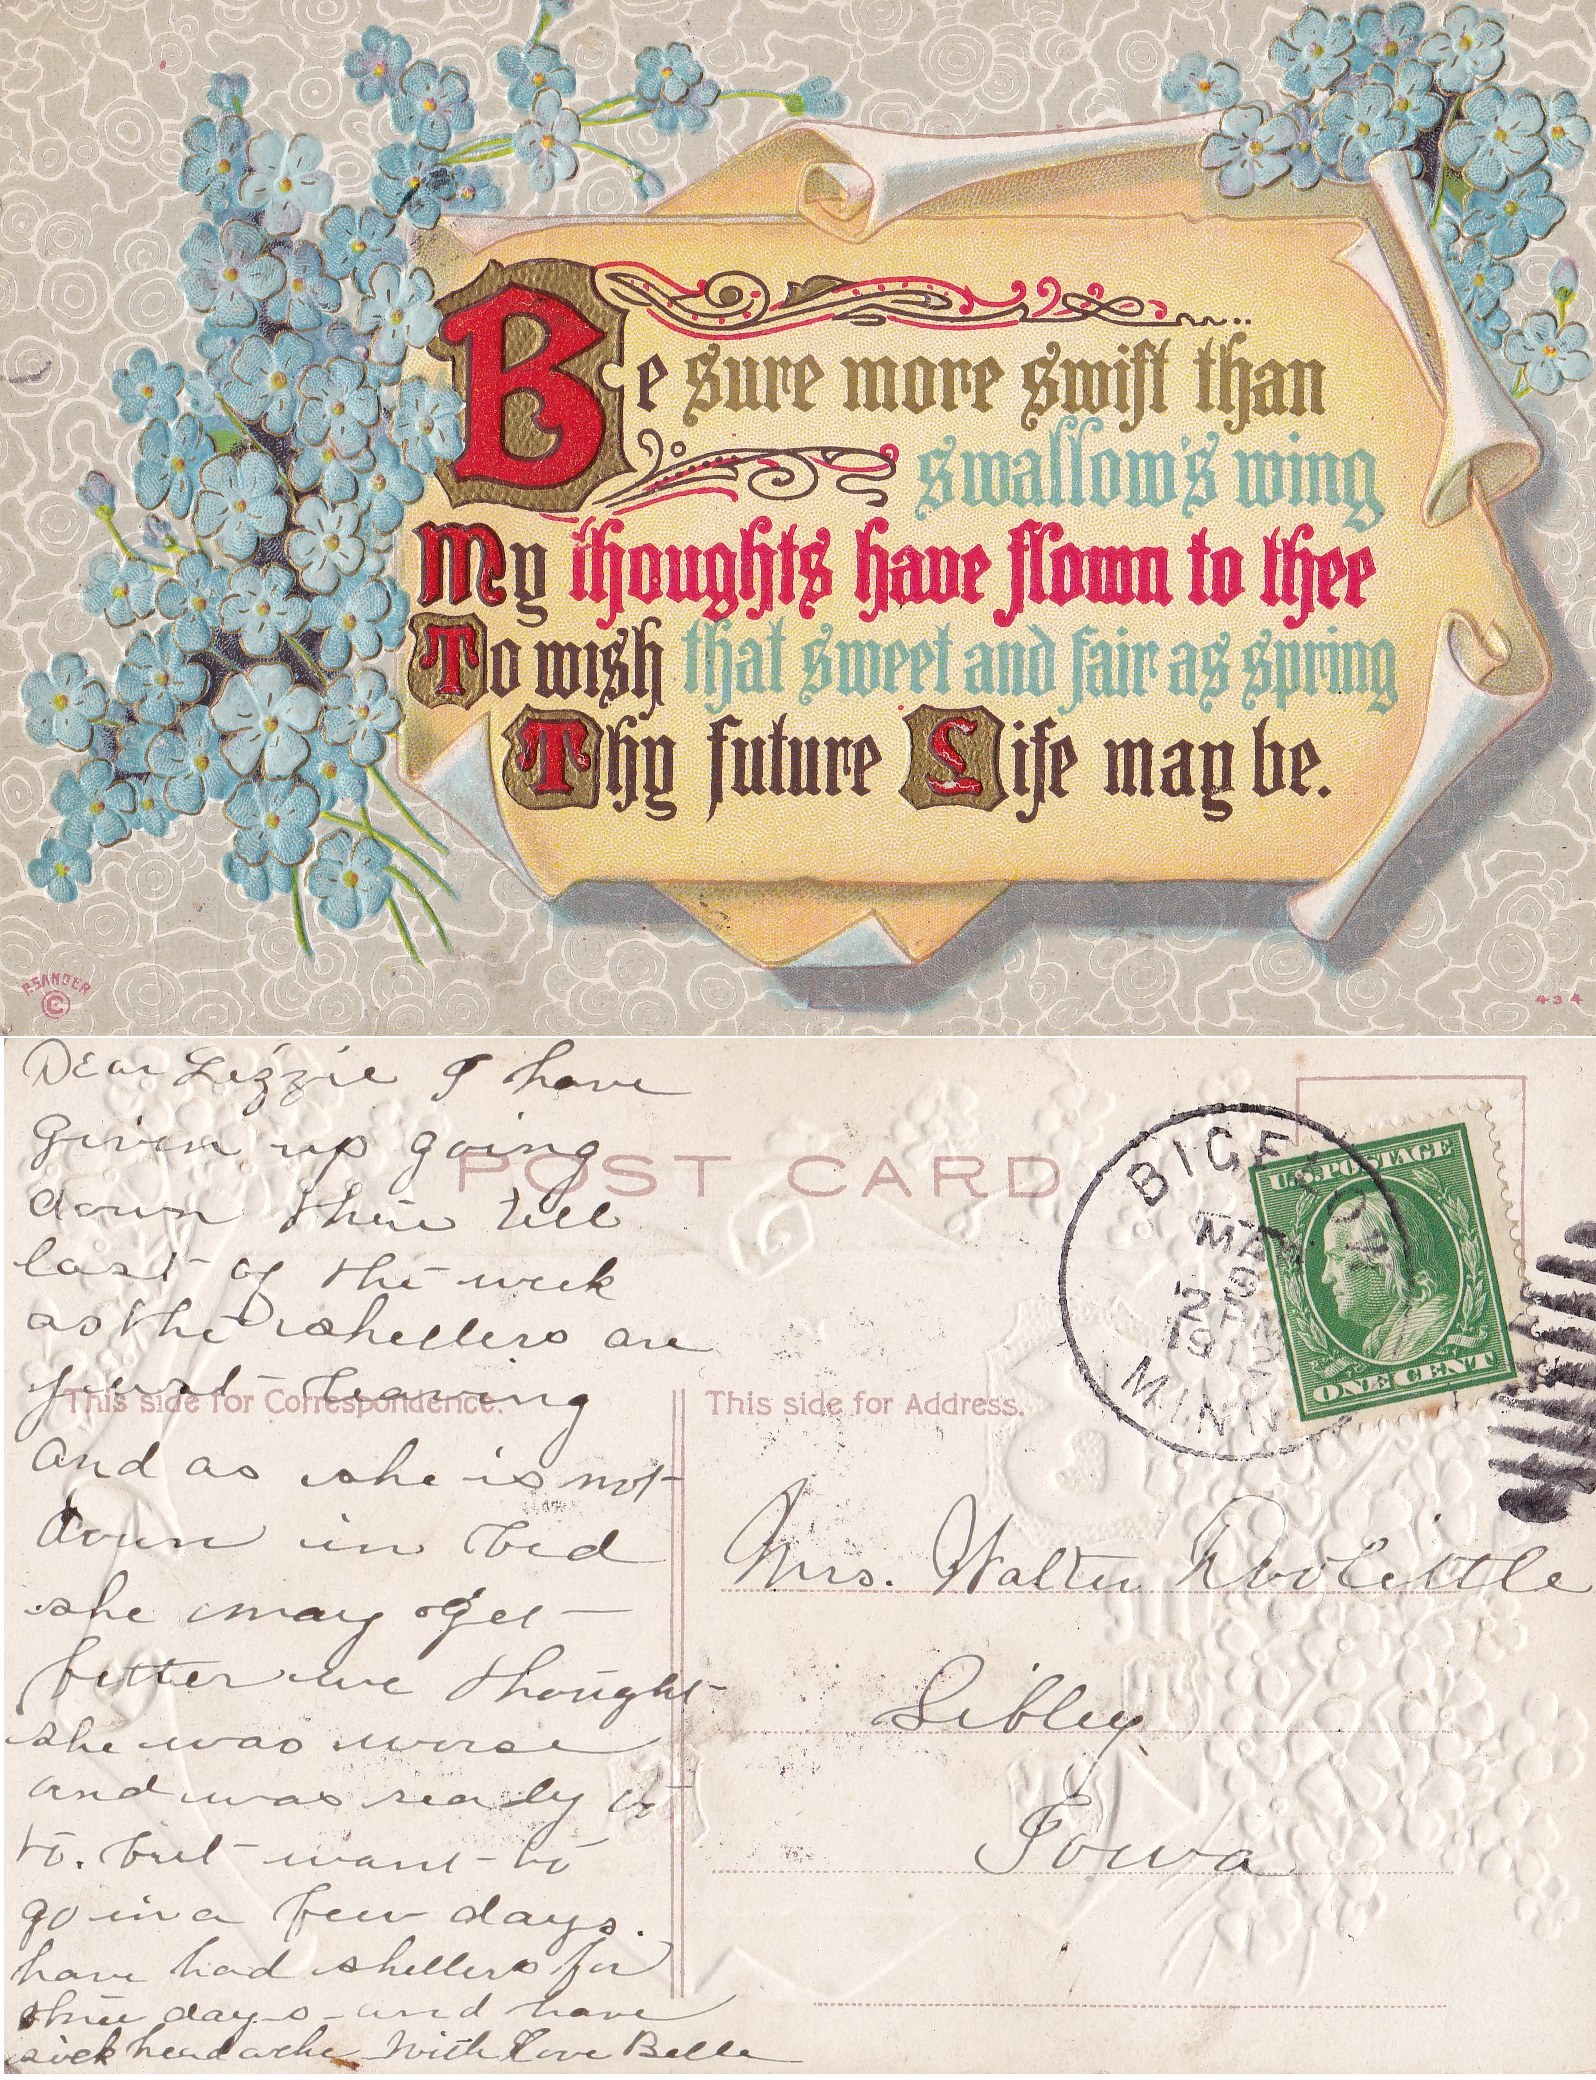 Be sure more swift than
swallow's wing
My thoughts have flown to thee
To wish that sweet and fair as spring
Thy future Life may be.
P. SANDER
©
434
Dear Lizzie I have
given up going
down there till
last of the week
as the shellers are
just leaving
and as she is not
down in bed
she may get
better we thought
she was worse
and was ready to
to. but want to
go in a few days.
have had shellers for
three days and have
sick headache With Love Belle
POST CARD
This side for Correspondence.
This side for Address.
BIGELOW
MAY
2 PM
1912
MINN
U.S. POSTAGE
ONE CENT
Mrs. Walter Doolittle
Sibley
Iowa